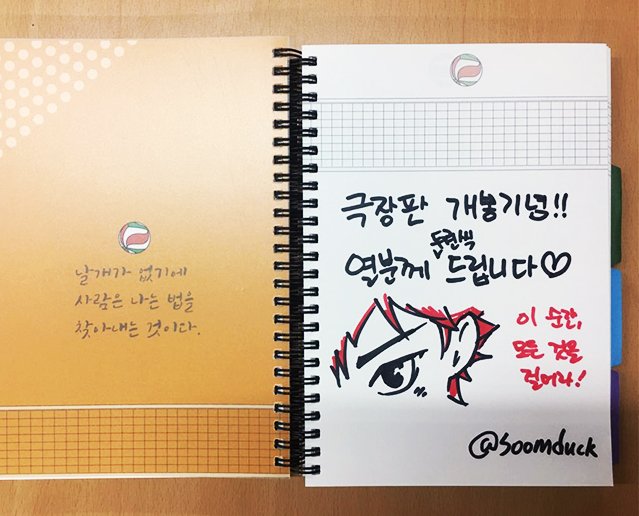 날개가 없기에
사람은 나는 법을
찾아내는 것이다.
극장판 개봉기념!!
열분께 두권씩 드립니다♡
이 순간,
모든 것을
걸어라!
@soomduck